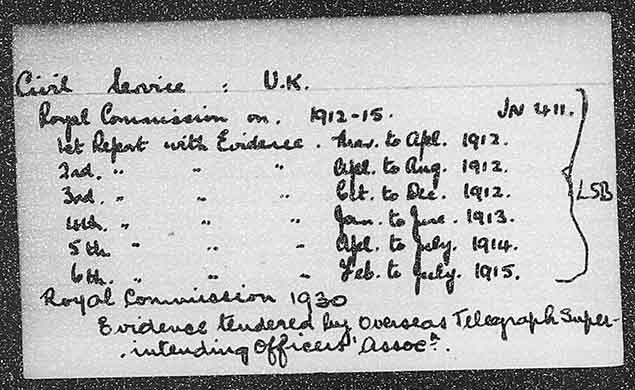 Civil Service : U.K.
Royal Commission on. 1912-15. JN 411.
1st Report with Evidence. Mar. to Apl. 1912.
2nd. " " " Apl. to Aug. 1912.
3rd. " " " Oct. to Dec. 1912.
4th. " " " Jan. to June. 1913.
5th. " " " Apl. to July. 1914.
6th. " " " Feb. to July. 1915.
LSB
Royal Commission 1930
Evidence tendered by Overseas Telegraph Super-
intending Officers' Assocn.